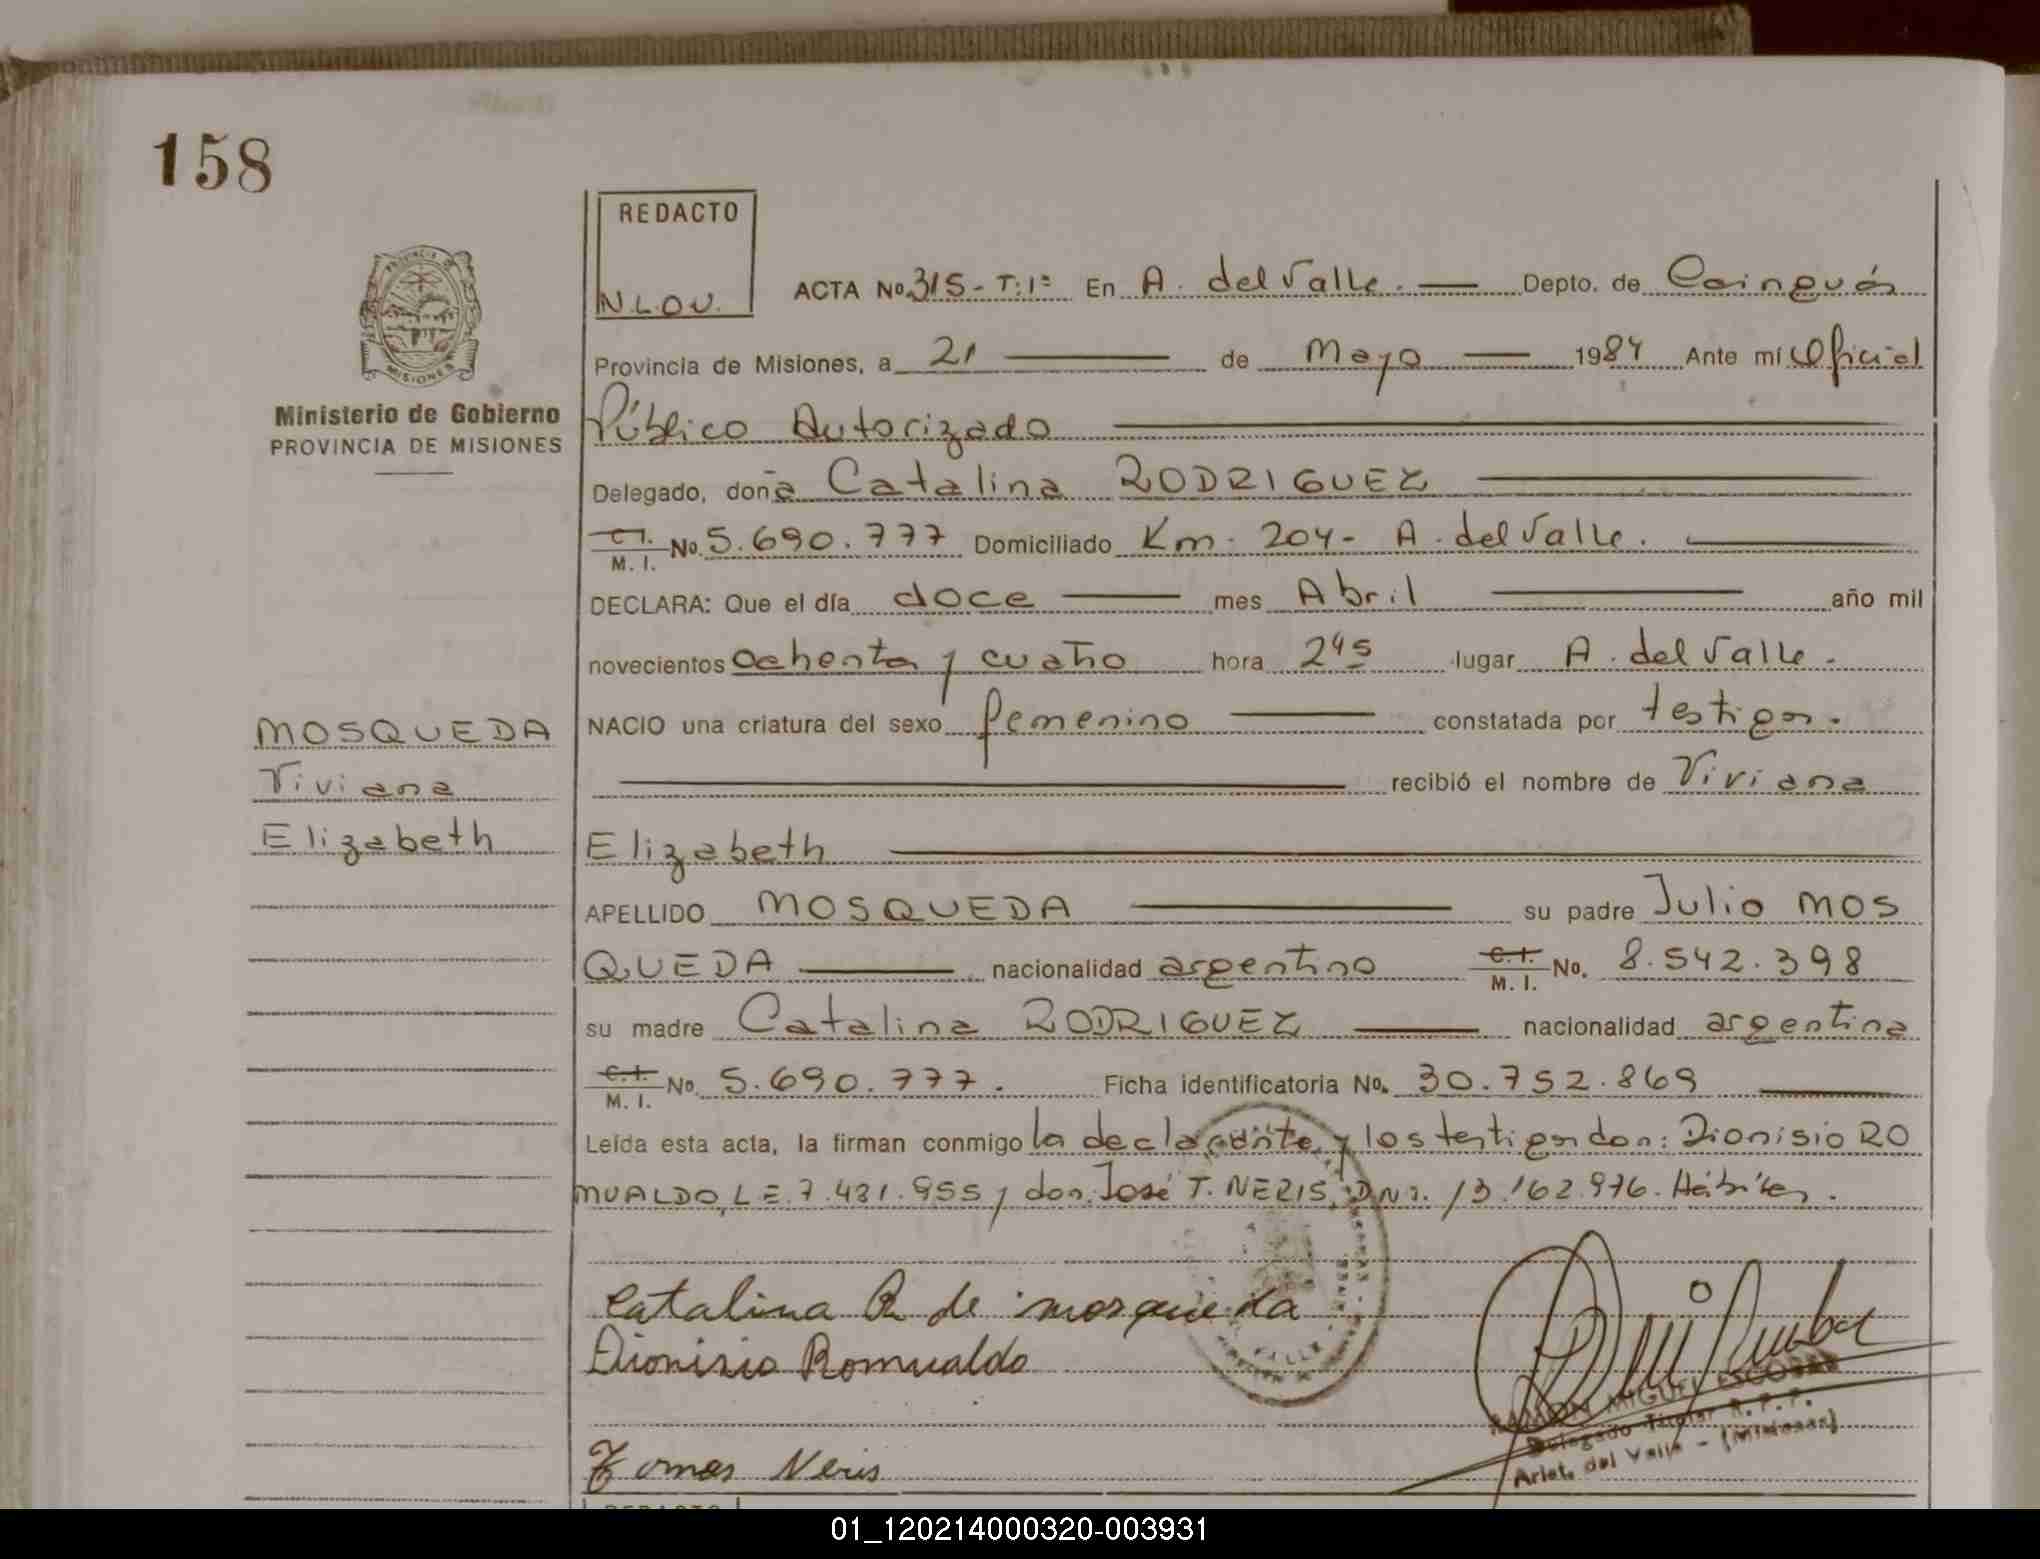 158
REDACTO
N.L.O.V.
ACTA No. 315 - T: 1º En A. del Valle. Depto. de Cainguás
PROVINCIA DE
MISIONES
Ministerio de Gobierno
PROVINCIA DE MISIONES
Provincia de Misiones, a 21 de Mayo 1984 Ante mí Oficial
Público Autorizado
Delegado, doña Catalina RODRIGUEZ
C.I. M.I. No. 5.690.777 Domiciliado Km. 204 - A. del Valle.
DECLARA: Que el día doce mes Abril año mil
novecientos ochenta y cuatro hora 2 45 lugar A. del Valle.
MOSQUEDA
Viviana
Elizabeth
NACIO una criatura del sexo femenino constatada por testigos.
recibió el nombre de Viviana
Elizabeth
APELLIDO MOSQUEDA su padre Julio MOS
QUEDA nacionalidad argentino C.I. M.I. No. 8.542.398
su madre Catalina RODRIGUEZ nacionalidad argentina
C.I. M.I. No. 5.690.777. Ficha identificatoria No. 30.752.869
Leída esta acta, la firman conmigo la declarante y los testigos don: Dionisio RO
MUALDO, L.E. 7.431.955 y don: José T. NERIS, DNI. 13.162.976. Hábiles.
Catalina R de mosqueda
Dionisio Romualdo
VALLE
RAMON MIGUEL ESCOBAR
Delegado Titular R.P.P.
Arist. del Valle - (Misiones)
Tomas Neris
REDACTO
01_120214000320-003931